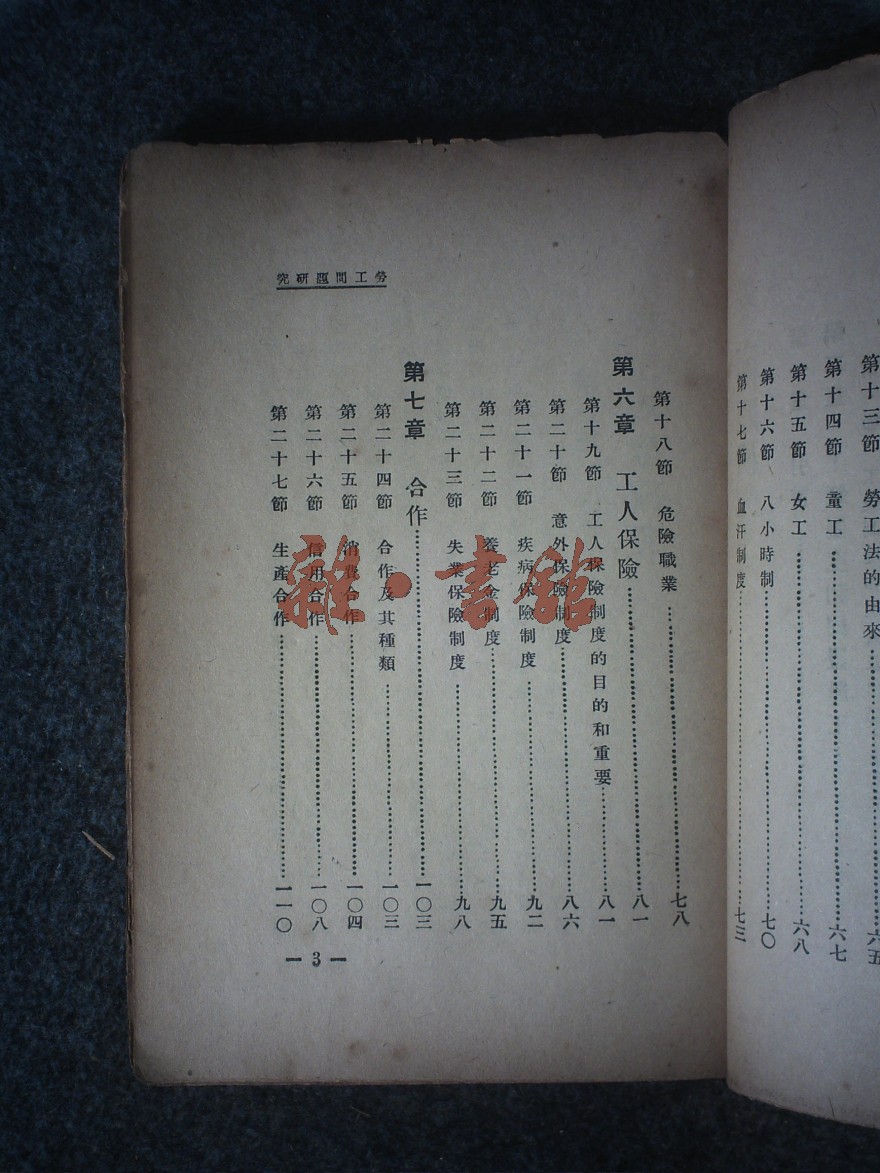 第十三節　勞工法的由來……六五
第十四節　童工……六七
第十五節　女工……六八
第十六節　八小時制……七〇
第十七節　血汗制度……七三
勞工問題研究
第十八節　危險職業……七八
第六章　工人保險……八一
第十九節　工人保險制度的目的和重要……八一
第二十節　意外保險制度……八六
第二十一節　疾病保險制度……九二
第二十二節　養老金制度……九五
第二十三節　失業保險制度……九八
第七章　合作……一〇三
第二十四節　合作及其種類……一〇三
第二十五節　消費合作……一〇四
第二十六節　信用合作……一〇八
第二十七節　生產合作……一一〇
— 3 —
雜·書館